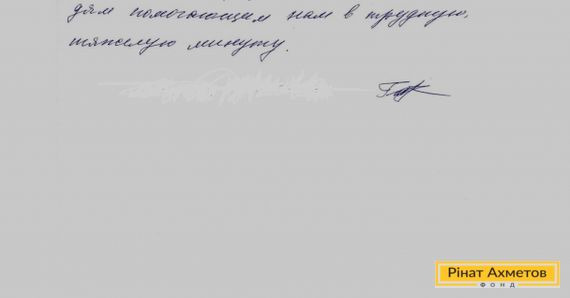 дям помогающим нам в трудную,
тяжелую минуту.
Рінат Ахметов
ФОНД